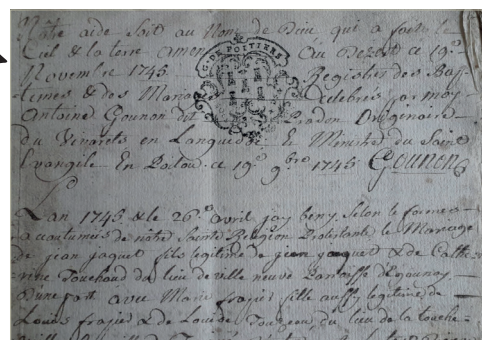 Nôtre aide soit au Nom de Dieu qui a fait le
Ciel & la terre amen Au Desert ce 19.e
Novembre 1745 Registre des Bap-
G. DE POITIERS
têmes & des Maria Celebrés par moy
Antoine Gounon dit Pradon Originaire
du Vivarets en Languedoc Ministre du Saint
Evangile En Poitou ce 19.e 9.bre 1745 Gounon
L'an 1745 & le 26.e avril jay beny Selon les formes
accoutumées de nôtre Sainte Religion Protestante le Mariage
de jean paquet fils legitime de jean paquet & de Cathe-
rine Touchaud du lieu de ville neuve Parroisse
D'une part avec Marie frapier fille aussy legitime de
Louis frapier & de Louise du lieu de la touche